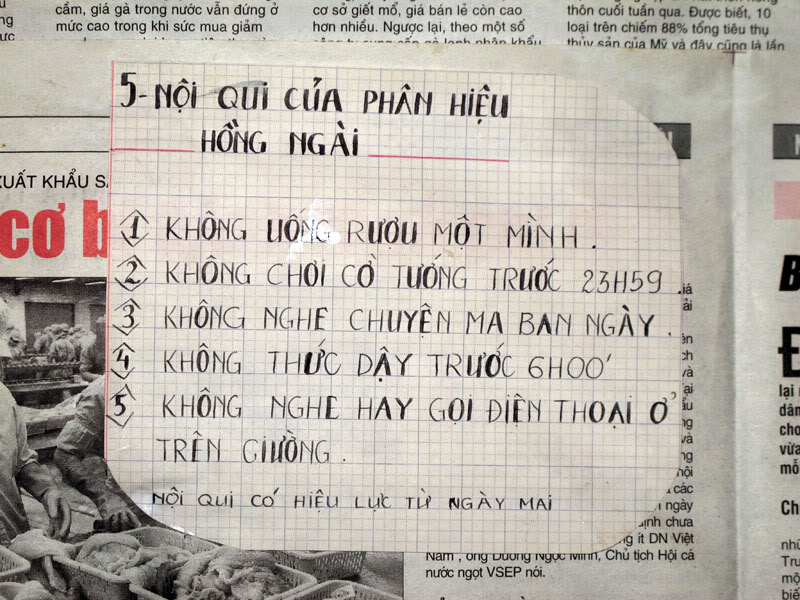 cầm, giá gà trong nước vẫn đứng ở
mức cao trong khi sức mua giảm
cơ sở giết mổ, giá bán lẻ còn cao
hơn nhiều. Ngược lại, theo một số
thôn cuối tuần qua. Được biết, 10
loại trên chiếm 88% tổng tiêu thụ
thủy sản của Mỹ và đây cũng là lần
5- NỘI QUI CỦA PHÂN HIỆU
HỒNG NGÀI
XUẤT KHẨU
cơ
1 KHÔNG UỐNG RƯỢU MỘT MÌNH.
2 KHÔNG CHƠI CỜ TƯỚNG TRƯỚC 23H59
3 KHÔNG NGHE CHUYỆN MA BAN NGÀY.
4 KHÔNG THỨC DẬY TRƯỚC 6H00'
5 KHÔNG NGHE HAY GỌI ĐIỆN THOẠI Ở
TRÊN GIƯỜNG.
NỘI QUI CÓ HIỆU LỰC TỪ NGÀY MAI
các
ngày
định chưa
ít DN Việt
Nam, ông Dương Ngọc Minh, Chủ tịch Hội cá
nước ngọt VSEP nói.
lại
dân
cho
vừa
Ch
như
Tru
một
biế